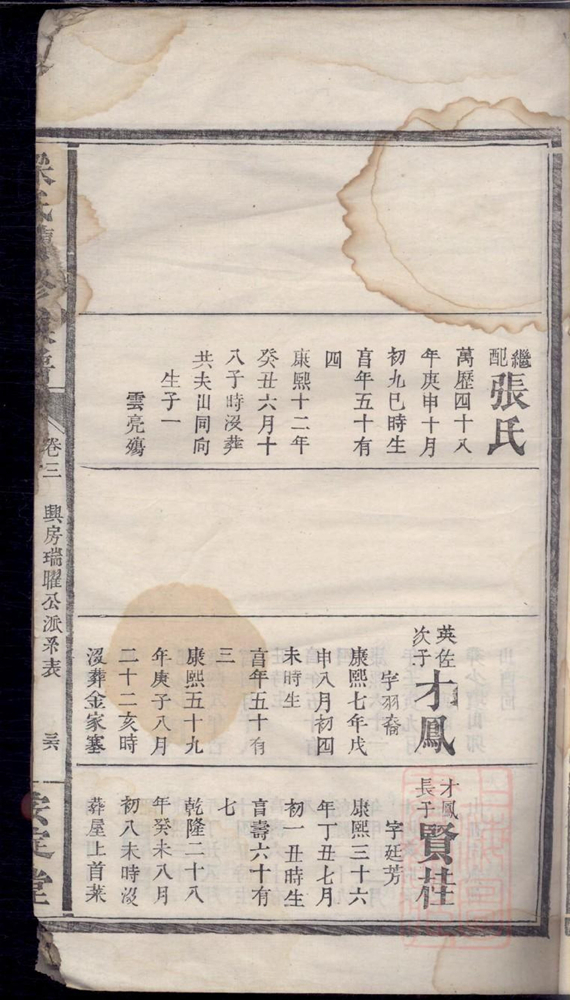 繼配張氏
萬歷四十八
年庚申十月
初九巳時生
享年五十有
四
康熙十二年
癸丑六月十
八子時沒葬
共夫山同向
生子一
雲亮殤
英佐次子才鳳
字羽裔
康熙七年戊
申八月初四
未時生
享年五十有
三
康熙五十九
年庚子八月
二十二亥時
沒葬金家塞
才鳳長子賢桂
字廷芳
康熙三十六
年丁丑七月
初一丑時生
享壽六十有
七
乾隆二十八
年癸未八月
初八未時沒
葬屋上首菜
氏續修族譜
卷三
興房瑞曜公派系表
安定堂